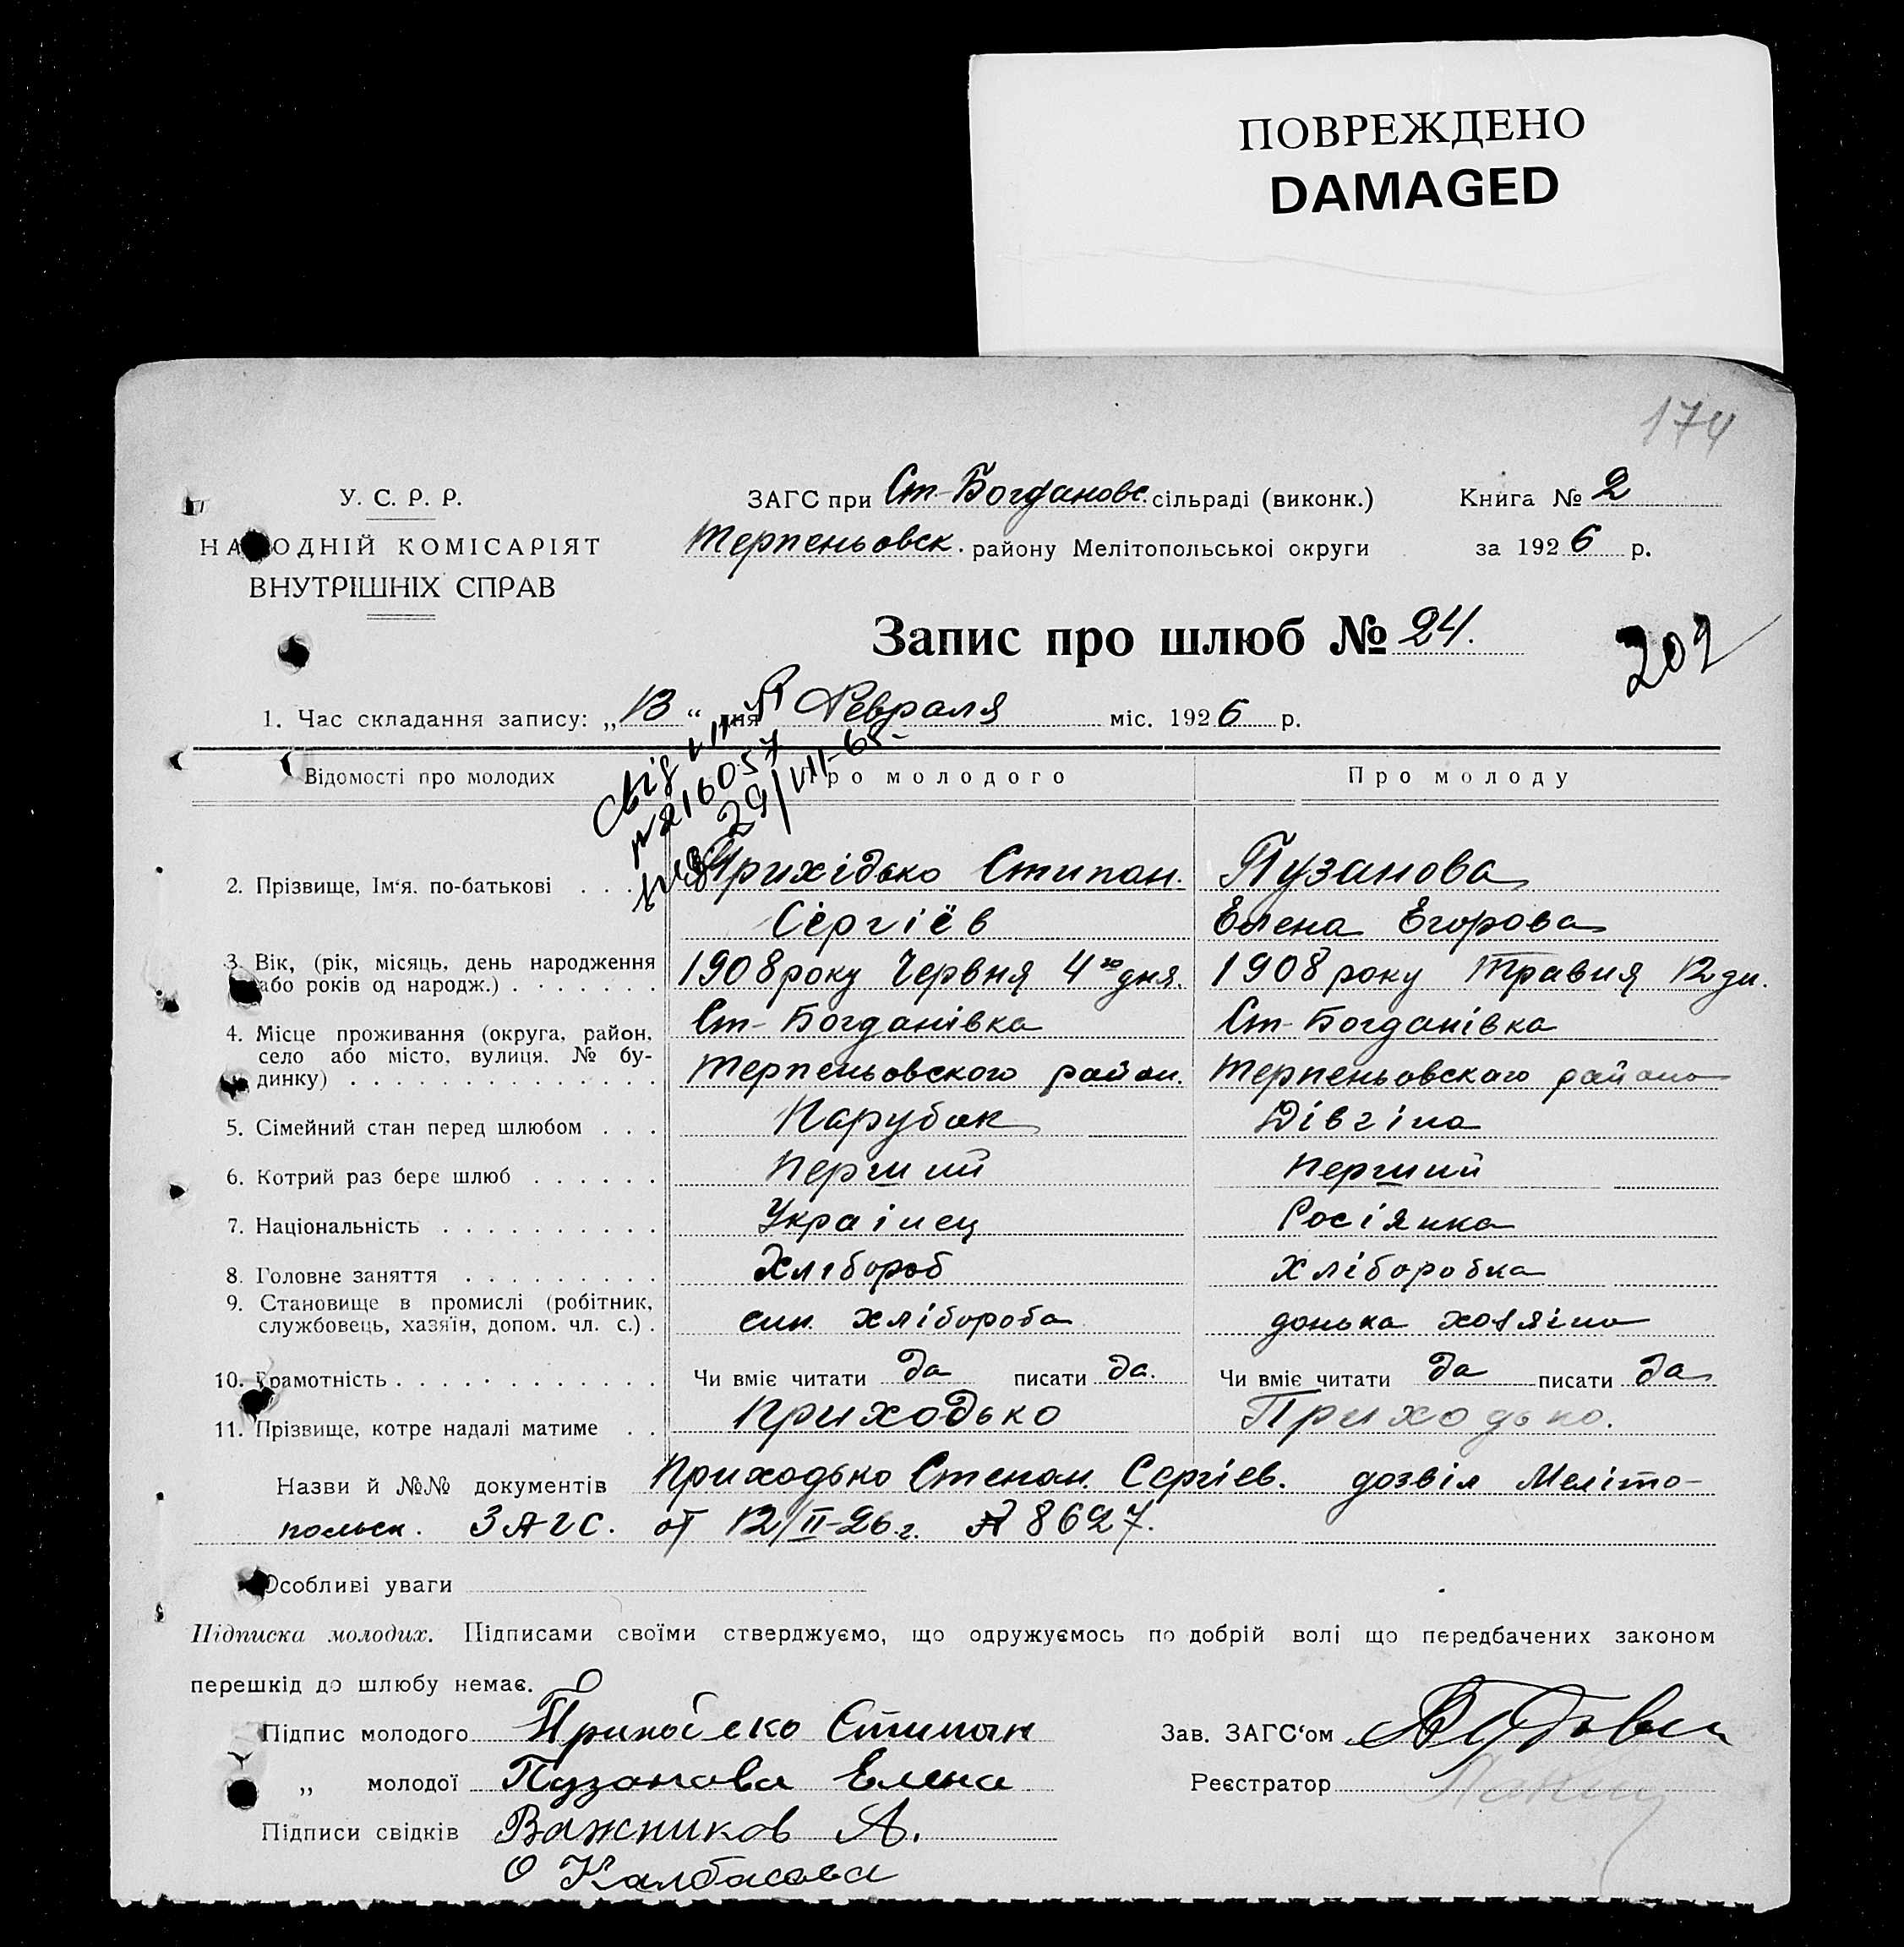 ПОВРЕЖДЕНО
DAMAGED
174
У. С. Р. Р.
НАРОДНІЙ КОМІСАРІЯТ
ВНУТРІШНІХ СПРАВ
ЗАГС при Ст-Богдановс. сільраді (виконк.)
Книга № 2
Терпеньовск. району Мелітопольськоі округи
за 1926 р.
Запис про шлюб № 24.
202
1. Час складання запису: „13“ дня Февраля міс. 1926 р.
№ 216057
29/VII-65-
Відомості про молодих
Про молодого
Про молоду
2. Прізвище, Ім‘я. по-батькові . . . Прихідько Стипан. Пузанова
Сергіёв Елена Егорова
3. Вік, (рік, місяць, день народження 1908 року Червня 4го дня. 1908 року Травня 12 дн.
або років од народж.) . . . . . . .
4. Місце проживання (округа, район, Ст-Богданівка Ст-Богданівка
село або місто, вулиця, № бу-
динку) . . . . . . . . . . . . . . Терпеньовского район. Терпеньовскаго района
5. Сімейний стан перед шлюбом . . . Парубок Дівчіна
6. Котрий раз бере шлюб . . . . . . Перший Перший
7. Національність . . . . . . . . . . Украінец Росіянка
8. Головне заняття . . . . . . . . . Хлібороб Хліборобка
9. Становище в промислі (робітник,
службовець, хазяїн, допом. чл. с.) . син. хлібороба донька хозяіна
10. Грамотність . . . . . . . . . . . . Чи вміє читати да писати да. Чи вміє читати да писати да
11. Прізвище, котре надалі матиме . . Приходько Приходько.
Назви й №№ документів Приходько Степан. Сергіев. дозвіл Меліто-
польск. ЗАГС. от 12/II-26 г. № 8627.
Особливі уваги
Підписка молодих. Підписами своїми стверджуємо, що одружуємось по добрій волі що передбачених законом
перешкід до шлюбу немає.
Підпис молодого Стипан
Зав. ЗАГС‘ом
„ молодої Пузанова Елена
Реєстратор
Підписи свідків Важников А.
О Калбасова